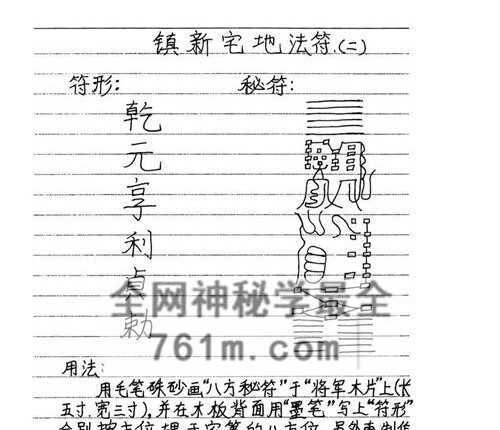 镇新宅地法符.(二)
符形: 秘符:
乾
元
享
利
貞
勅
全网神秘学最全
761m.com
用法:
用毛笔硃砂画“八方秘符”于“将军木片”上(长
五寸.宽三寸),并在木板背面用“墨笔”写上“符形”